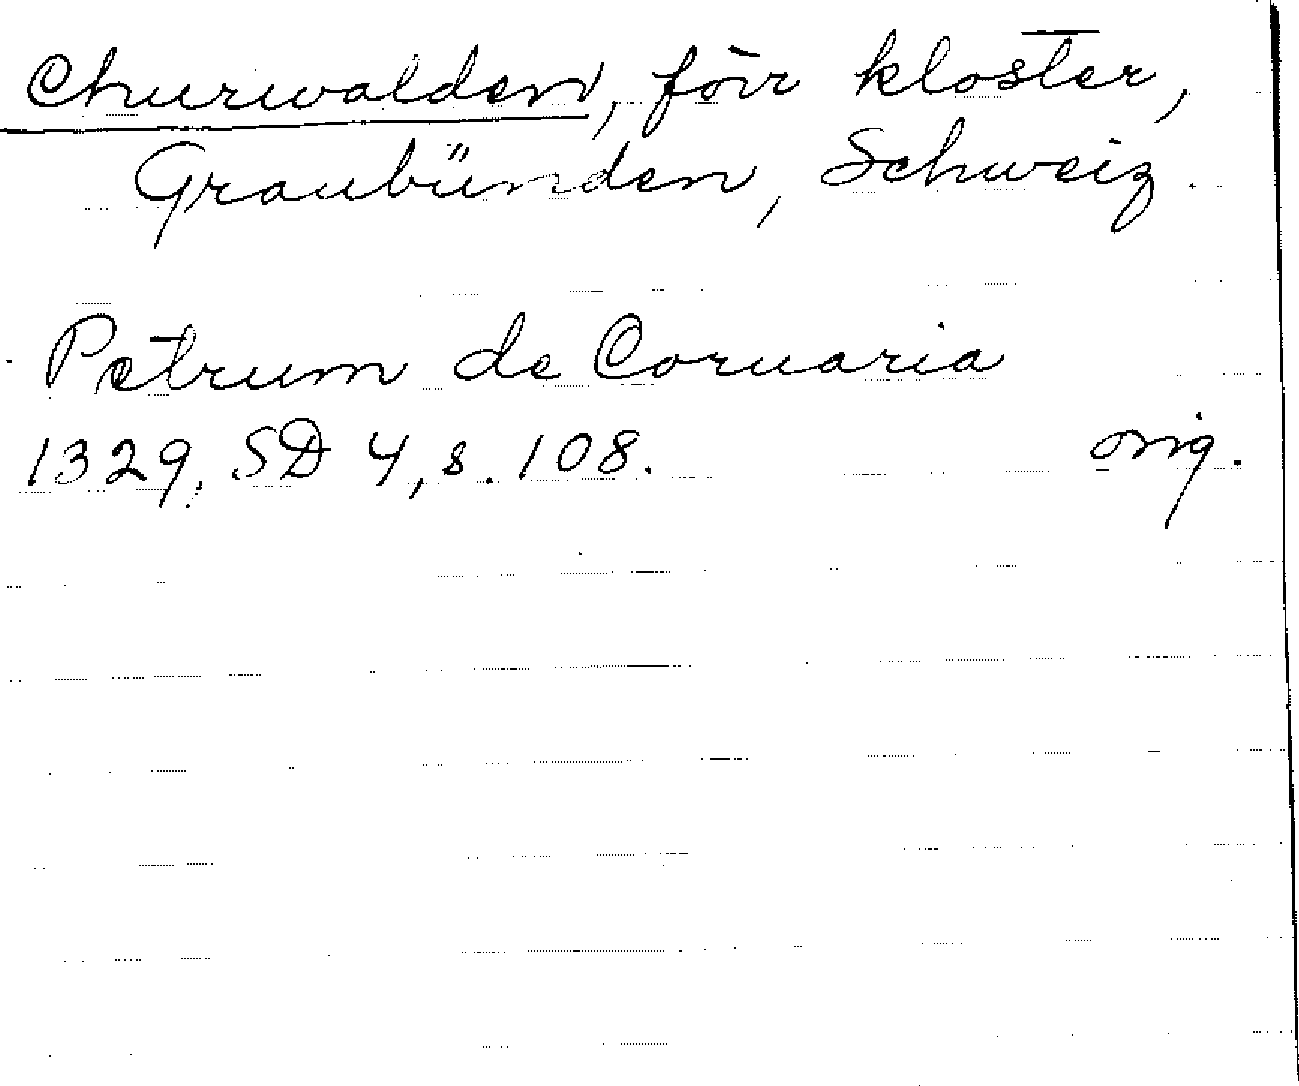 Churwalden, förr kloster,
Graubünden, Schweiz.
Petrum de Coruaria
1329, SD 4, s. 108. orig.